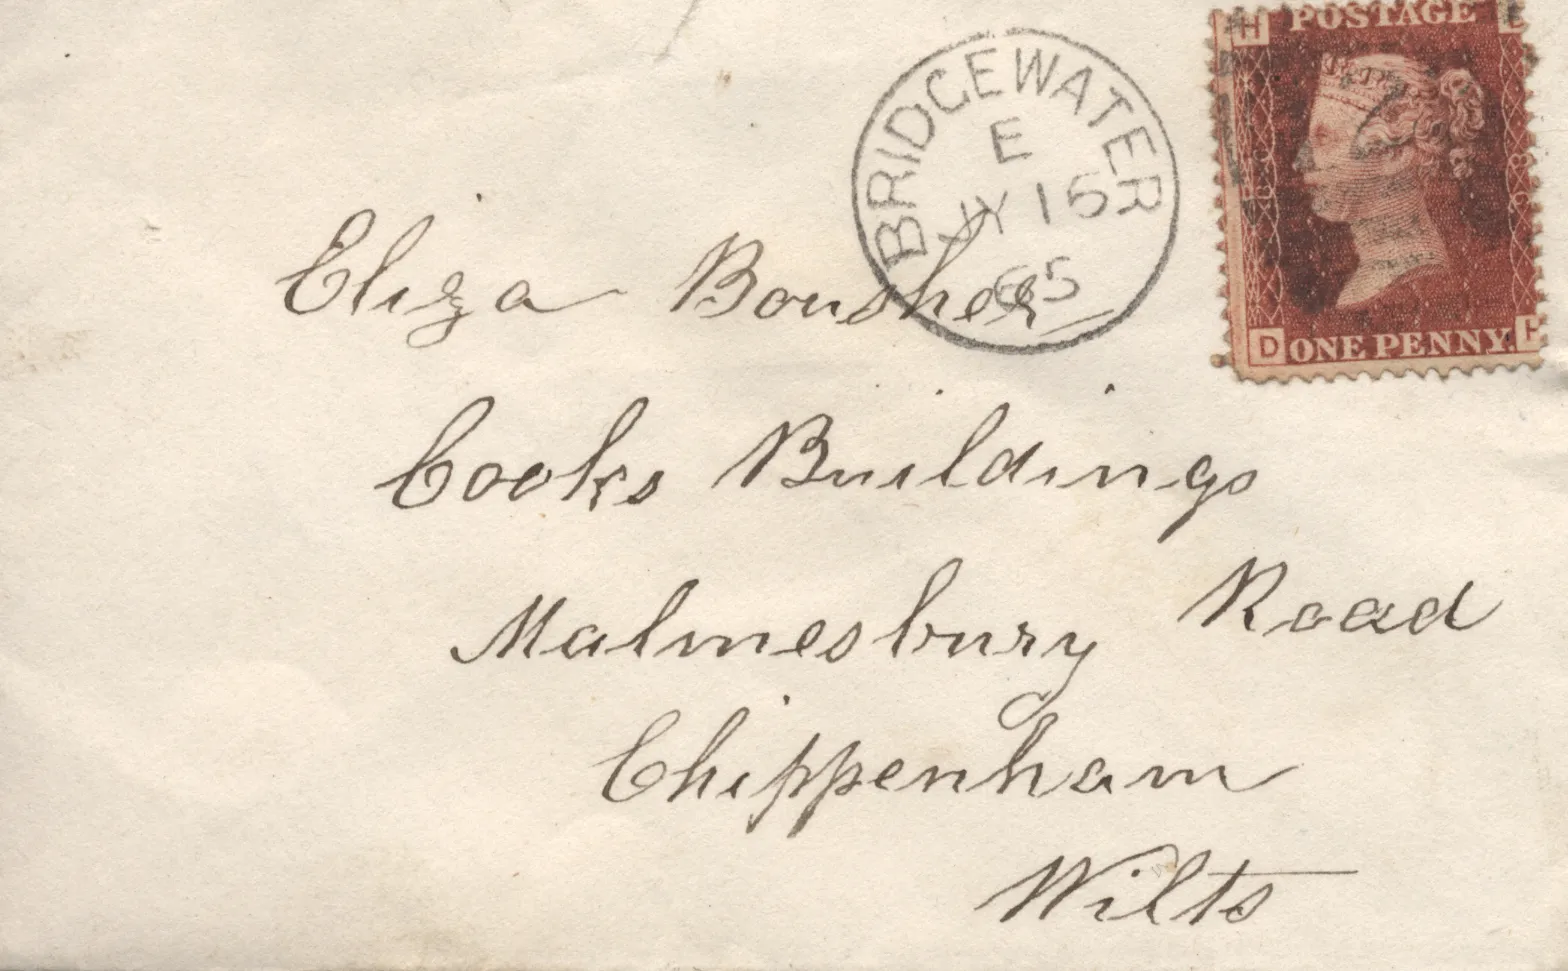 BRIDGEWATER
E
JY 16
65
H POSTAGE
D ONE PENNY. H
Eliza Bousher
Cooks Buildings
Malmesbury Road
Chippenham
Wilts